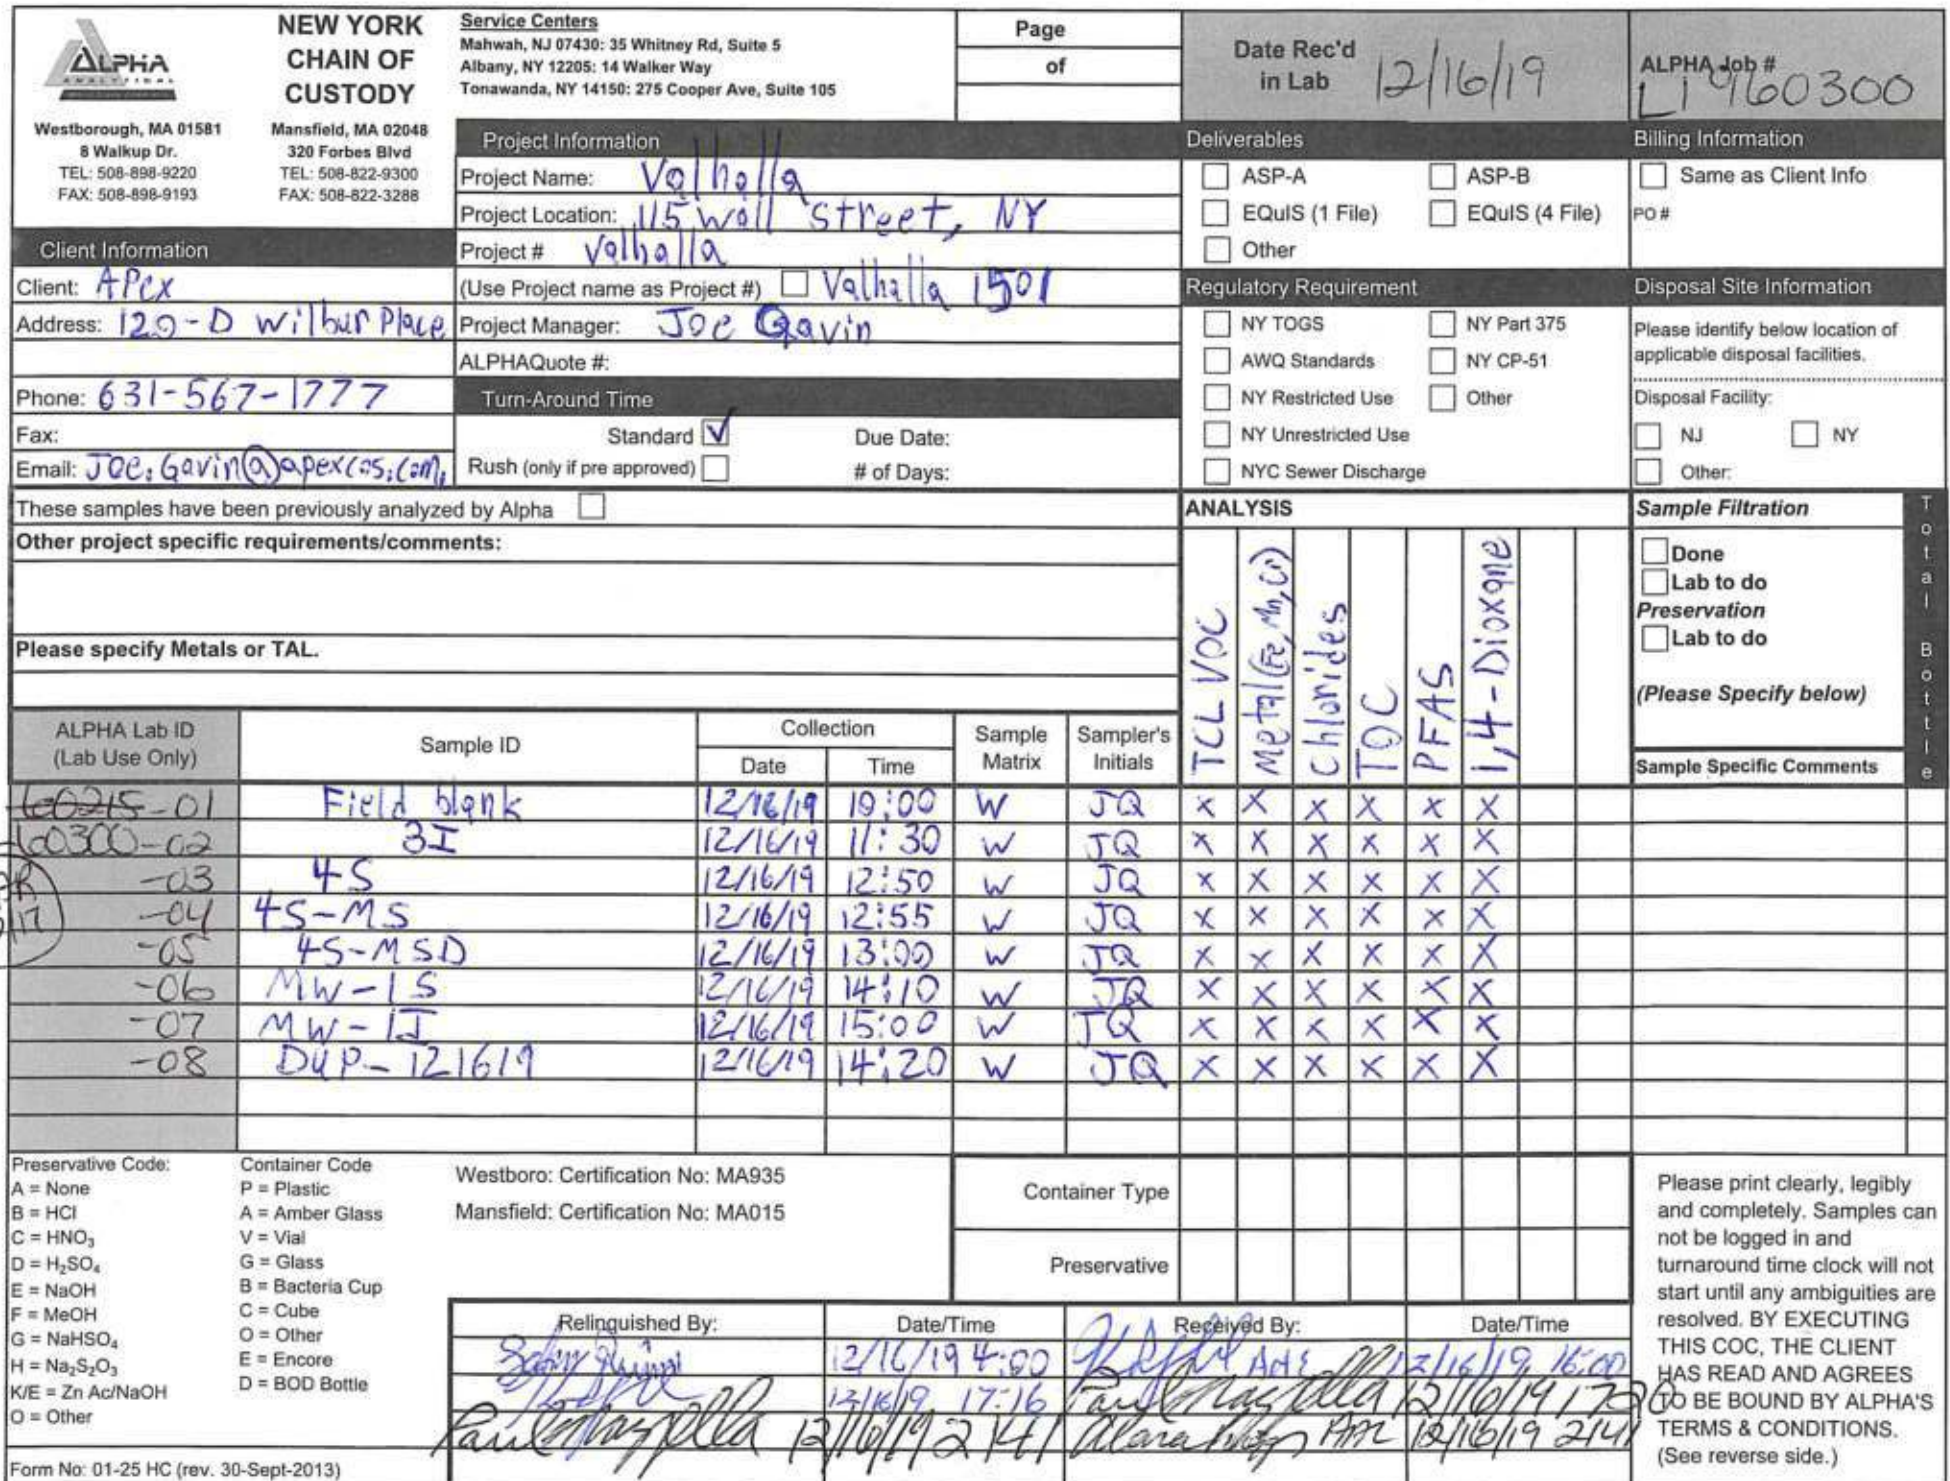 ALPHA
ANALYTICAL
Westborough, MA 01581
8 Walkup Dr.
TEL: 508-898-9220
FAX: 508-898-9193
NEW YORK
CHAIN OF
CUSTODY
Mansfield, MA 02048
320 Forbes Blvd
TEL: 508-822-9300
FAX: 508-822-3288
Service Centers
Mahwah, NJ 07430: 35 Whitney Rd, Suite 5
Albany, NY 12205: 14 Walker Way
Tonawanda, NY 14150: 275 Cooper Ave, Suite 105
Page
of
Date Rec'd
in Lab 12/16/19
ALPHA Job #
L1960300
Client Information
Client: Apex
Address: 120-D Wilbur Place
Phone: 631-567-1777
Fax:
Email: Joe.Gavin@apexcos.com,
Project Information
Project Name: Valhalla
Project Location: 115 Wall Street, NY
Project # Valhalla
(Use Project name as Project #) Valhalla 1501
Project Manager: Joe Gavin
ALPHAQuote #:
Turn-Around Time
Standard Due Date:
Rush (only if pre approved) # of Days:
Deliverables
ASP-A ASP-B
EQuIS (1 File) EQuIS (4 File)
Other
Regulatory Requirement
NY TOGS NY Part 375
AWQ Standards NY CP-51
NY Restricted Use Other
NY Unrestricted Use
NYC Sewer Discharge
Billing Information
Same as Client Info
PO #
Disposal Site Information
Please identify below location of
applicable disposal facilities.
Disposal Facility:
NJ NY
Other:
These samples have been previously analyzed by Alpha
Other project specific requirements/comments:
Please specify Metals or TAL.
ANALYSIS
TCL VOC
Metal (Fe, Mn, Cr)
Chlorides
TOC
PFAS
1,4-Dioxane
Sample Filtration
Done
Lab to do
Preservation
Lab to do
(Please Specify below)
Total Bottle
ALPHA Lab ID
(Lab Use Only)
Sample ID
Collection
Date Time
Sample
Matrix
Sampler's
Initials
Sample Specific Comments
60215-01 Field blank 12/16/19 10:00 W JQ X X X X X X
60300-02 3I 12/16/19 11:30 W JQ X X X X X X
-03 4S 12/16/19 12:50 W JQ X X X X X X
-04 4S-MS 12/16/19 12:55 W JQ X X X X X X
-05 4S-MSD 12/16/19 13:00 W JQ X X X X X X
-06 MW-1S 12/16/19 14:10 W JQ X X X X X X
-07 MW-1I 12/16/19 15:00 W JQ X X X X X X
-08 DUP-121619 12/16/19 14:20 W JQ X X X X X X
Preservative Code:
A = None
B = HCl
C = HNO₃
D = H₂SO₄
E = NaOH
F = MeOH
G = NaHSO₄
H = Na₂S₂O₃
K/E = Zn Ac/NaOH
O = Other
Container Code
P = Plastic
A = Amber Glass
V = Vial
G = Glass
B = Bacteria Cup
C = Cube
O = Other
E = Encore
D = BOD Bottle
Westboro: Certification No: MA935
Mansfield: Certification No: MA015
Container Type
Preservative
Relinquished By: Date/Time Received By: Date/Time
12/16/19 4:00 12/16/19 16:00
12/16/19 17:16 Paul Mazzella 12/16/19 1720
Paul Mazzella 12/16/19 2141 AAL 12/16/19 2141
Please print clearly, legibly
and completely. Samples can
not be logged in and
turnaround time clock will not
start until any ambiguities are
resolved. BY EXECUTING
THIS COC, THE CLIENT
HAS READ AND AGREES
TO BE BOUND BY ALPHA'S
TERMS & CONDITIONS.
(See reverse side.)
Form No: 01-25 HC (rev. 30-Sept-2013)